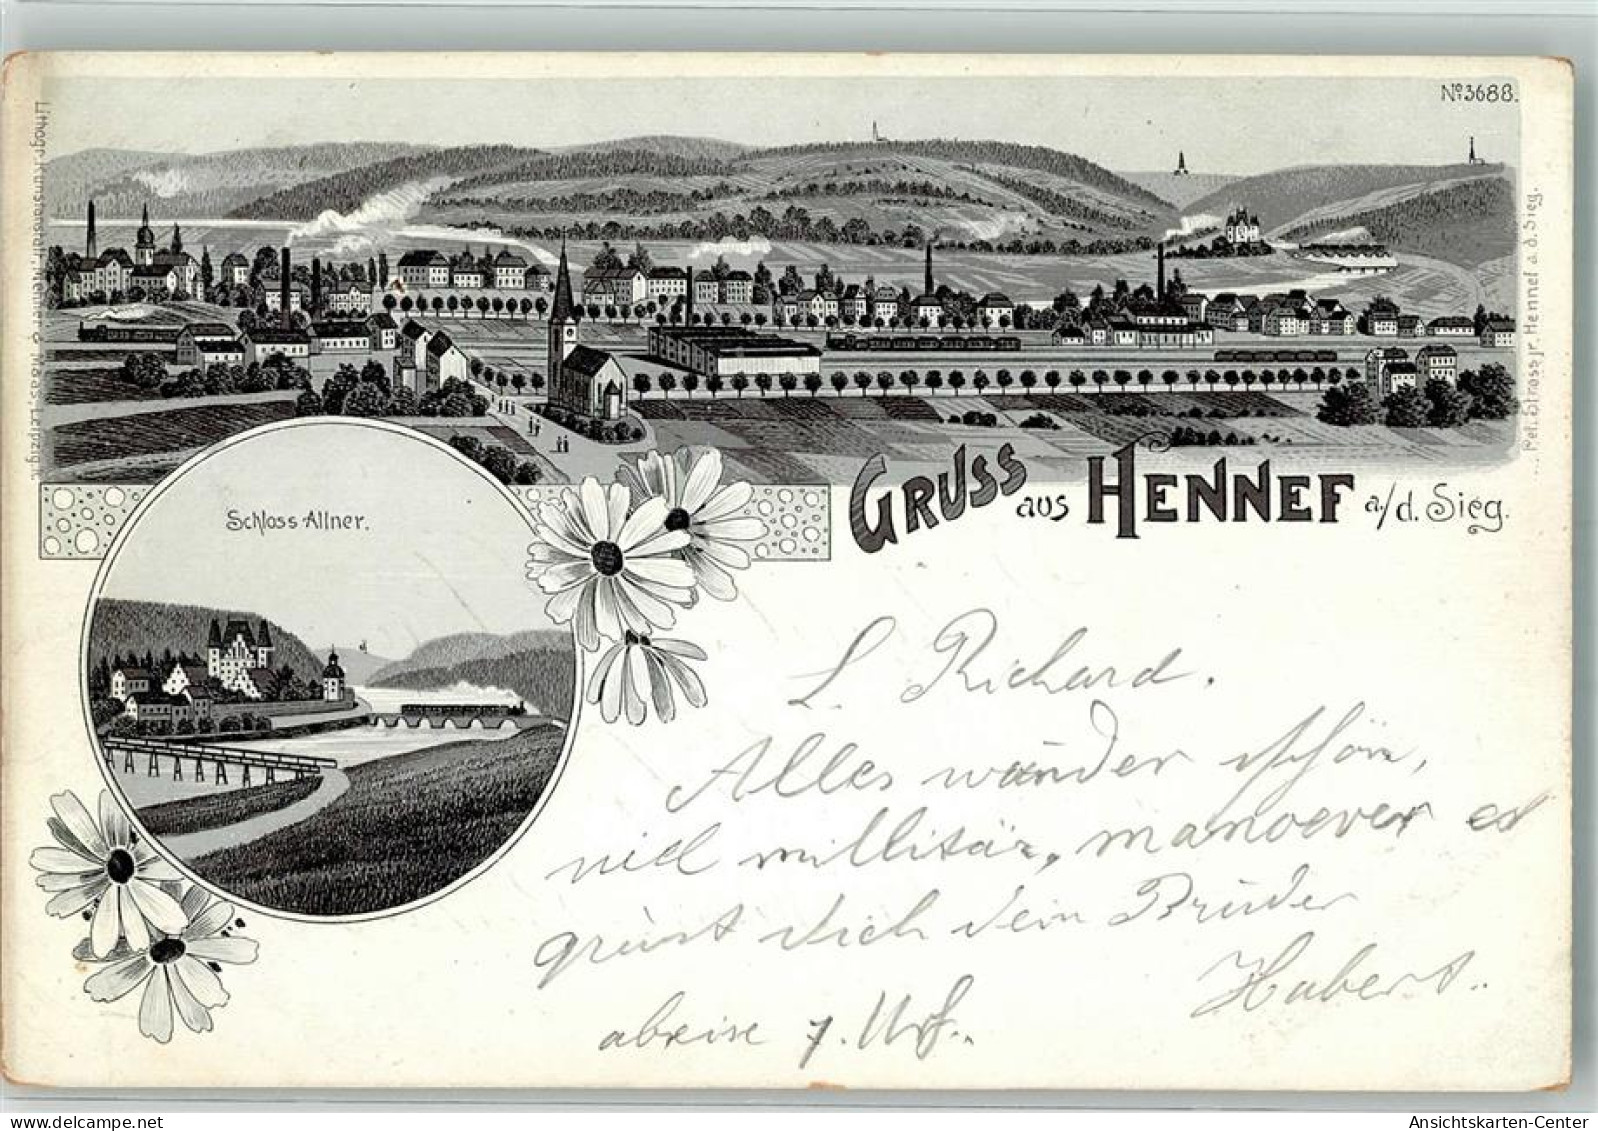 No 3688.
Lithogr. Kunstanstalt Mehner & Maas, Leipzig.
Pet. Stross jr. Hennef a. d. Sieg.
GRUSS aus HENNEF a/d. Sieg.
Schloss Allner.
L. Richard.
Alles wunder schön,
viel millitär, manoever es
grüst dich dein Brüder
Hubert..
abreise 7. Uhr..
Ansichtskarten-Center